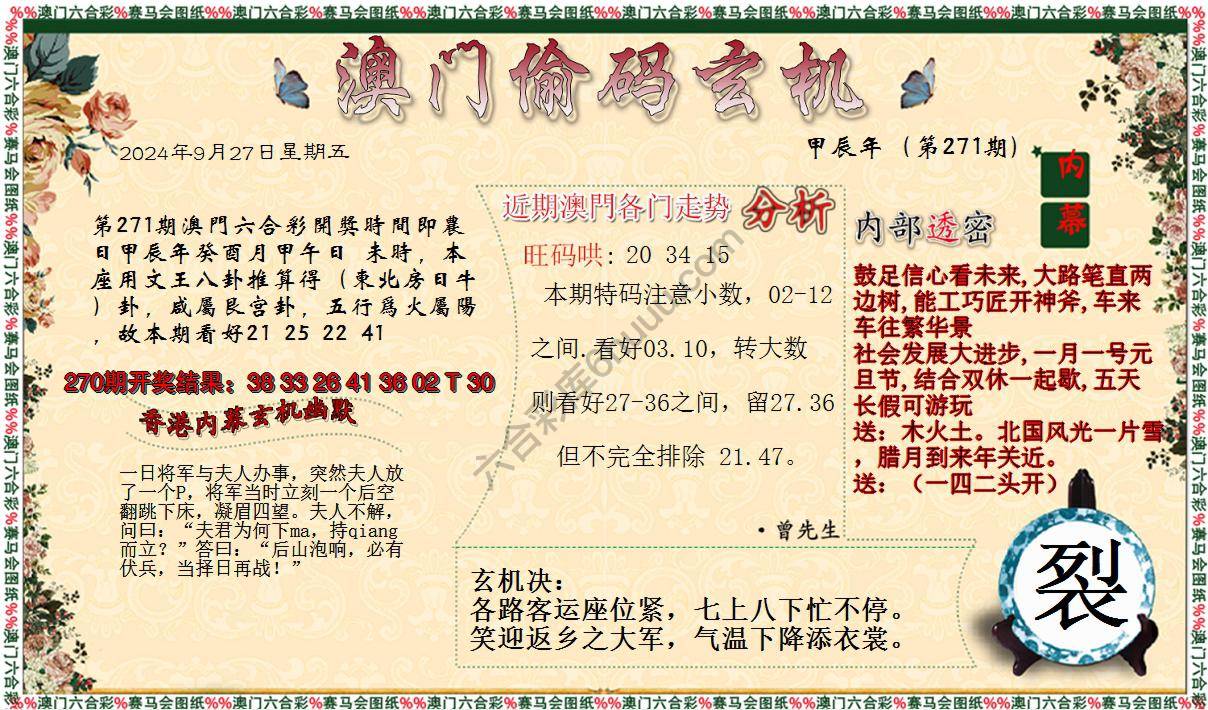 %%澳门六合彩%赛马会图纸%%澳门六合彩%赛马会图纸%%澳门六合彩%赛马会图纸%%澳门六合彩%赛马会图纸%%澳门六合彩%赛马会图纸%%澳门六合彩%赛马会图纸
澳门偷码玄机
2024年9月27日星期五
甲辰年（第271期）
内幕
第271期澳門六合彩開獎時間即農
日甲辰年癸酉月甲午日 未時，本
座用文王八卦推算得（東北房日牛
）卦，咸屬艮宫卦，五行爲火屬陽
，故本期看好21 25 22 41
270期开奖结果：38 33 26 41 36 02 T 30
香港内幕玄机幽默
一日将军与夫人办事，突然夫人放
了一个P，将军当时立刻一个后空
翻跳下床，凝眉四望。夫人不解，
问曰：“夫君为何下ma，持qiang
而立？”答曰：“后山泡响，必有
伏兵，当择日再战！”
近期澳門各门走势 分析
旺码哄: 20 34 15
本期特码注意小数，02-12
之间.看好03.10，转大数
则看好27-36之间，留27.36
但不完全排除 21.47。
·曾先生
内部透密
鼓足信心看未来,大路笔直两
边树,能工巧匠开神斧,车来
车往繁华景
社会发展大进步,一月一号元
旦节,结合双休一起歇,五天
长假可游玩
送：木火土。北国风光一片雪
，腊月到来年关近。
送：（一四二头开）
玄机决：
各路客运座位紧，七上八下忙不停。
笑迎返乡之大军，气温下降添衣裳。
裂
%%澳门六合彩%赛马会图纸%%澳门六合彩%赛马会图纸%%澳门六合彩%赛马会图纸%%澳门六合彩%赛马会图纸%%澳门六合彩%赛马会图纸%%澳门六合彩%赛马会图纸